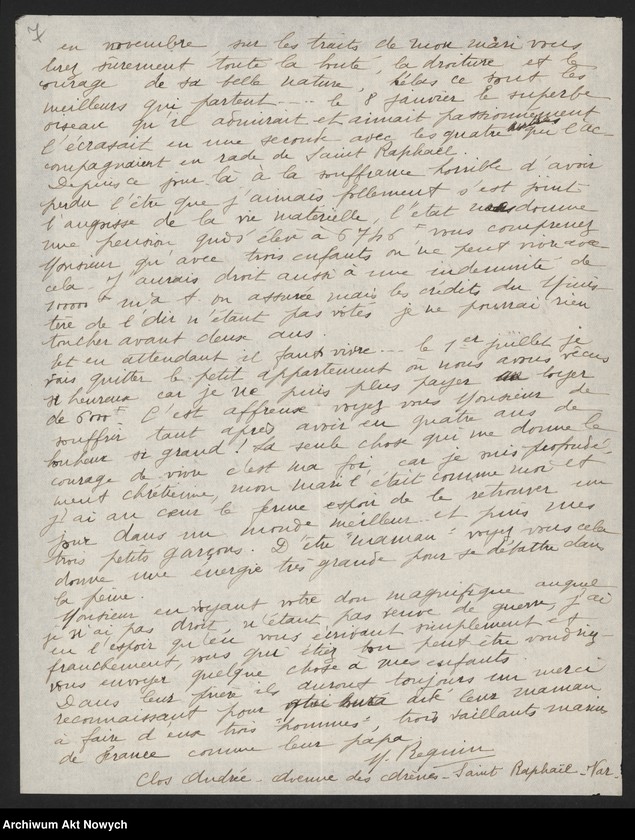 7
en novembre, sur les traits de mon mari vous
lirez sûrement toute la bonté, la droiture et le
courage de sa belle nature, hélas ce sont les
meilleurs qui partent.... le 8 janvier le superbe
oiseau qu'il admirait et aimait passionnément
l'écrasait en une seconde avec les quatre autres qui l'ac-
compagnaient en rade de Saint Raphaël.
Depuis ce jour-là à la souffrance horrible d'avoir
perdu l'être que j'aimais follement s'est joint
l'angoisse de la vie matérielle, l'état donne
une pension qui s'élève à 6746 f vous comprenez
Monsieur qu'avec trois enfants on ne peut vivre avec
cela. J'aurais droit aussi à une indemnité de
m'a t on assuré mais les crédits du Minis-
tère de l'air n'étant pas votés je ne pourrai rien
toucher avant deux ans.
Et en attendant il faut vivre.... le 1er juillet je
vais quitter le petit appartement où nous avons vécus
si heureux car je ne puis plus payer un loyer
de 6000 f C'est affreux voyez vous Monsieur de
souffrir tant après avoir eu quatre ans de
bonheur si grand! La seule chose qui me donne le
courage de vivre c'est ma foi, car je suis profondé-
ment chrétienne, mon mari l'était comme moi et
j'ai au cœur le ferme espoir de le retrouver un
jour dans un monde meilleur.. et puis mes
trois petits garçons. D'être "maman" voyez vous cela
donne une énergie très grande pour se débattre dans
la peine.
Monsieur en voyant votre don magnifique auquel
je n'ai pas droit, n'étant pas veuve de guerre, j'ai
eu l'espoir qu'en vous écrivant simplement et
franchement, vous qui êtez bon peut être voudriez-
vous envoyer quelque chose à mes enfants.
Dans leur prière ils diront toujours un merci
reconnaissant pour aidé leur maman
à faire d'eux trois "hommes", trois vaillants marins
de France comme leur papa
Y. Beguin
Clos Andrée - Avenue des Arènes - Saint Raphaël - Var -
Archiwum Akt Nowych